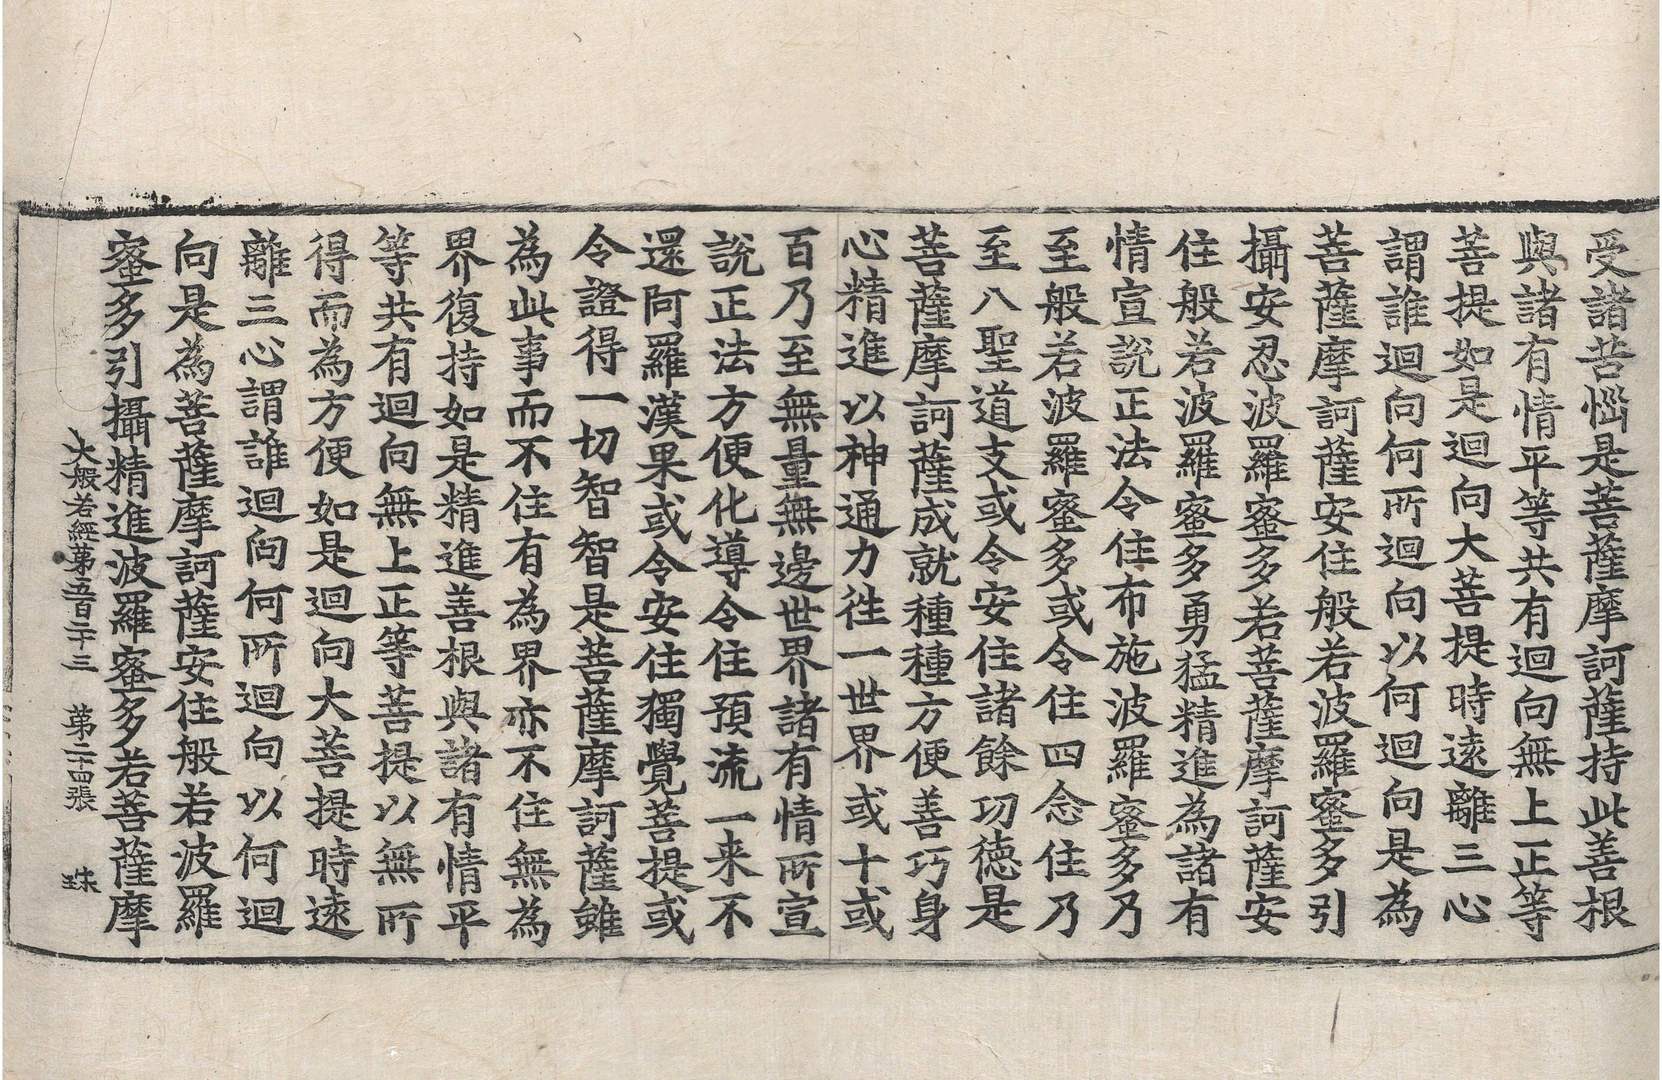 受諸苦惱是菩薩摩訶薩持此善根
與諸有情平等共有迴向無上正等
菩提如是迴向大菩提時遠離三心
謂誰迴向何所迴向以何迴向是為
菩薩摩訶薩安住般若波羅蜜多引
攝安忍波羅蜜多若菩薩摩訶薩安
住般若波羅蜜多勇猛精進為諸有
情宣說正法令住布施波羅蜜多乃
至般若波羅蜜多或令住四念住乃
至八聖道支或令安住諸餘功德是
菩薩摩訶薩成就種種方便善巧身
心精進以神通力往一世界或十或
百乃至無量無邊世界諸有情所宣
說正法方便化導令住預流一来不
還阿羅漢果或令安住獨覺菩提或
令證得一切智智是菩薩摩訶薩雖
為此事而不住有為界亦不住無為
界復持如是精進善根與諸有情平
等共有迴向無上正等菩提以無所
得而為方便如是迴向大菩提時遠
離三心謂誰迴向何所迴向以何迴
向是為菩薩摩訶薩安住般若波羅
蜜多引攝精進波羅蜜多若菩薩摩
大般若經第五百二十三 第二十四張 珠